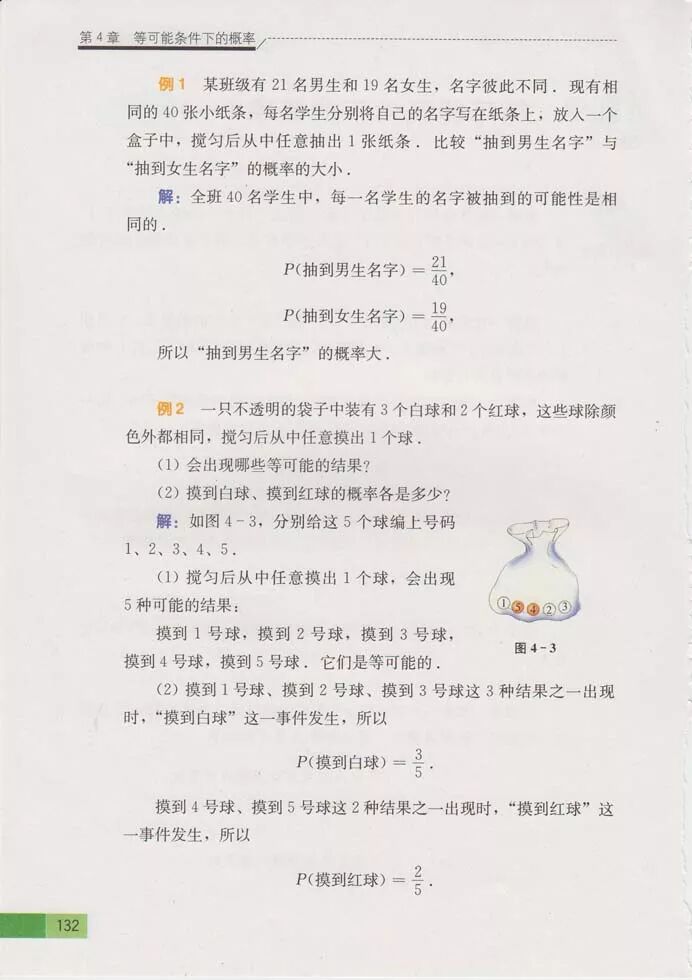 第4章 等可能条件下的概率
例1 某班级有21名男生和19名女生，名字彼此不同．现有相
同的40张小纸条，每名学生分别将自己的名字写在纸条上，放入一个
盒子中，搅匀后从中任意抽出1张纸条．比较“抽到男生名字”与
“抽到女生名字”的概率的大小．
解：全班40名学生中，每一名学生的名字被抽到的可能性是相
同的．
P(抽到男生名字)＝21/40，
P(抽到女生名字)＝19/40，
所以“抽到男生名字”的概率大．
例2 一只不透明的袋子中装有3个白球和2个红球，这些球除颜
色外都相同，搅匀后从中任意摸出1个球．
（1）会出现哪些等可能的结果？
（2）摸到白球、摸到红球的概率各是多少？
解：如图4-3，分别给这5个球编上号码
1、2、3、4、5．
（1）搅匀后从中任意摸出1个球，会出现
5种可能的结果：
摸到1号球，摸到2号球，摸到3号球，
摸到4号球，摸到5号球．它们是等可能的．
①⑤④②③
图4-3
（2）摸到1号球、摸到2号球、摸到3号球这3种结果之一出现
时，“摸到白球”这一事件发生，所以
P(摸到白球)＝3/5．
摸到4号球、摸到5号球这2种结果之一出现时，“摸到红球”这
一事件发生，所以
P(摸到红球)＝2/5．
132